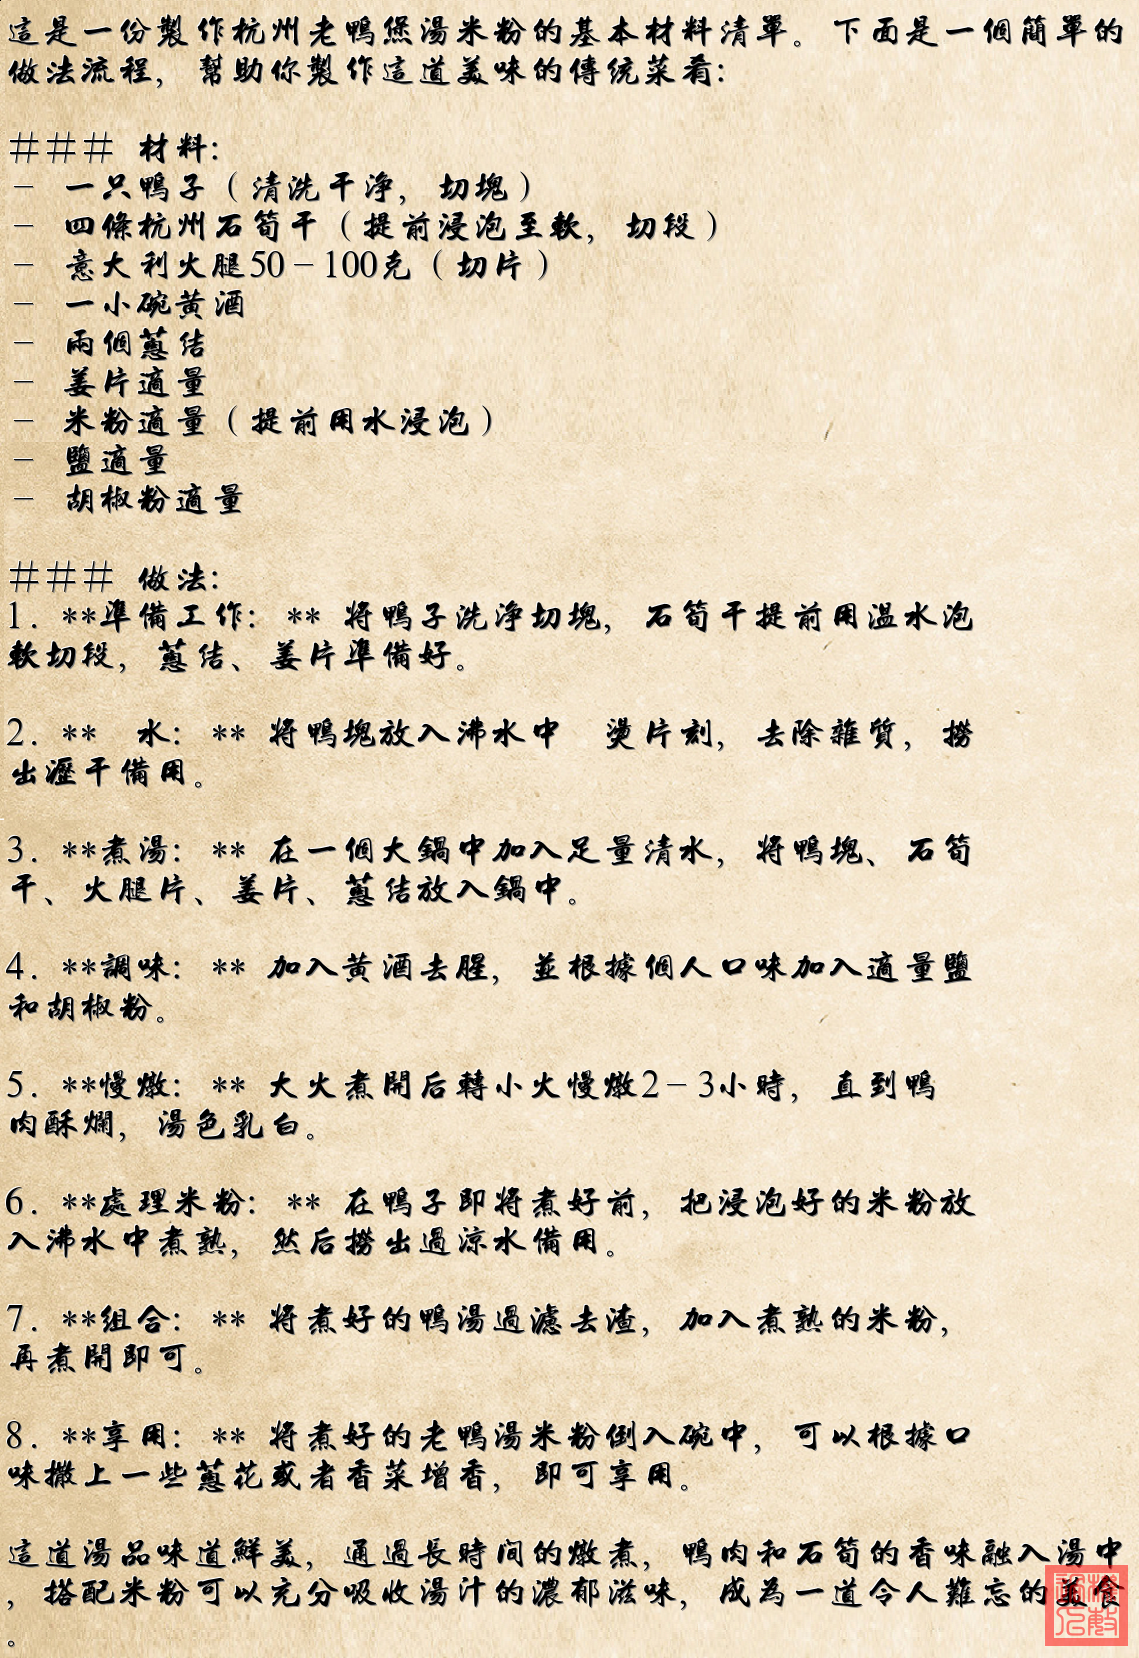 這是一份製作杭州老鴨煲湯米粉的基本材料清單。下面是一個簡單的
做法流程，幫助你製作這道美味的傳統菜肴：
### 材料：
- 一只鴨子（清洗干净，切塊）
- 四條杭州石筍干（提前浸泡至軟，切段）
- 意大利火腿50-100克（切片）
- 一小碗黄酒
- 兩個蔥结
- 姜片適量
- 米粉適量（提前用水浸泡）
- 鹽適量
- 胡椒粉適量
### 做法：
1. **準備工作：** 将鴨子洗净切塊，石筍干提前用温水泡
軟切段，蔥结、姜片準備好。
2. ** 水：** 將鴨塊放入沸水中 燙片刻，去除雜質，撈
出瀝干備用。
3. **煮湯：** 在一個大鍋中加入足量清水，將鴨塊、石筍
干、火腿片、姜片、蔥结放入鍋中。
4. **調味：** 加入黄酒去腥，並根據個人口味加入適量鹽
和胡椒粉。
5. **慢燉：** 大火煮開后轉小火慢燉2-3小時，直到鴨
肉酥爛，湯色乳白。
6. **處理米粉：** 在鴨子即將煮好前，把浸泡好的米粉放
入沸水中煮熟，然后撈出過涼水備用。
7. **组合：** 將煮好的鴨湯過濾去渣，加入煮熟的米粉，
再煮開即可。
8. **享用：** 將煮好的老鴨湯米粉倒入碗中，可以根據口
味撒上一些蔥花或者香菜增香，即可享用。
這道湯品味道鮮美，通過長時间的燉煮，鴨肉和石筍的香味融入湯中
，搭配米粉可以充分吸收湯汁的濃郁滋味，成為一道令人難忘的美食
。